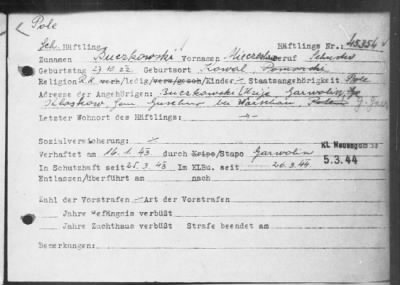 Pole
Sch. Häftling Häftlings Nr.: 45356
Zunamen Buczkowski Vornamen Beruf
Geburtstag 27.10.22 Geburtsort Kowal
Religion R.K. verh/ledig/verw/gesch/Kinder - Staatsangehörigkeit Pole
Adresse der Angehörigen: Buczkowski Garwolin,
bei Warschau, Polen
Letzter Wohnort des Häftlings:
Sozialversicherung:
Verhaftet am 16.1.43 durch Kripo/Stapo Garwolin
Kl. Neuengamme
5.3.44
In Schutzhaft seit 25.3.43 Im KLBu. seit
Entlassen/überführt am nach
Zahl der Vorstrafen - Art der Vorstrafen
Jahre Gefängnis verbüßt
Jahre Zuchthaus verbüßt Strafe beendet am
Bemerkungen: